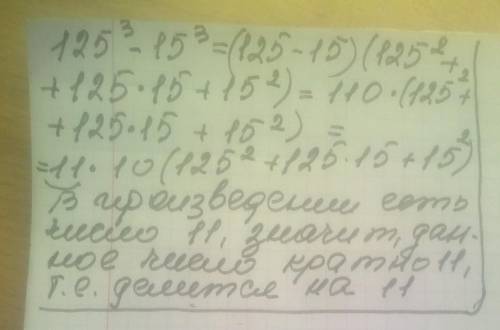 125³ - 15³ = (125 - 15) (125² +
+ 125 · 15 + 15²) = 110 · (125² +
+ 125 · 15 + 15²) =
= 11 · 10 (125² + 125 · 15 + 15²)
В произведении есть
число 11, значит, дан-
ное число кратно 11,
т.е. делится на 11